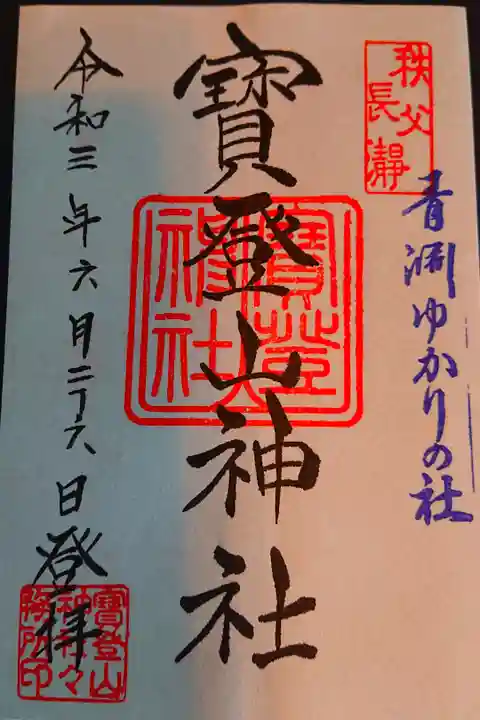 秩父
長瀞
青淵ゆかりの社
寶登山神社
寶登山
神社
令和三年六月二十六日登拝
寶登山
神社々
務所印